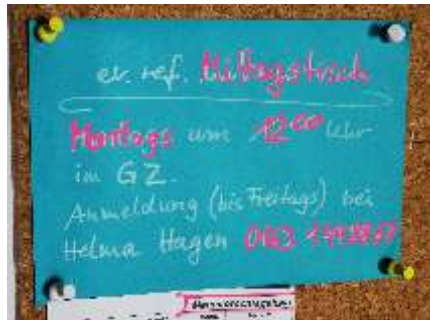 ev. ref. Mittagstisch
Montags um 12⁰⁰ Uhr
im GZ.
Anmeldung (bis Freitags) bei
Helma Hagen